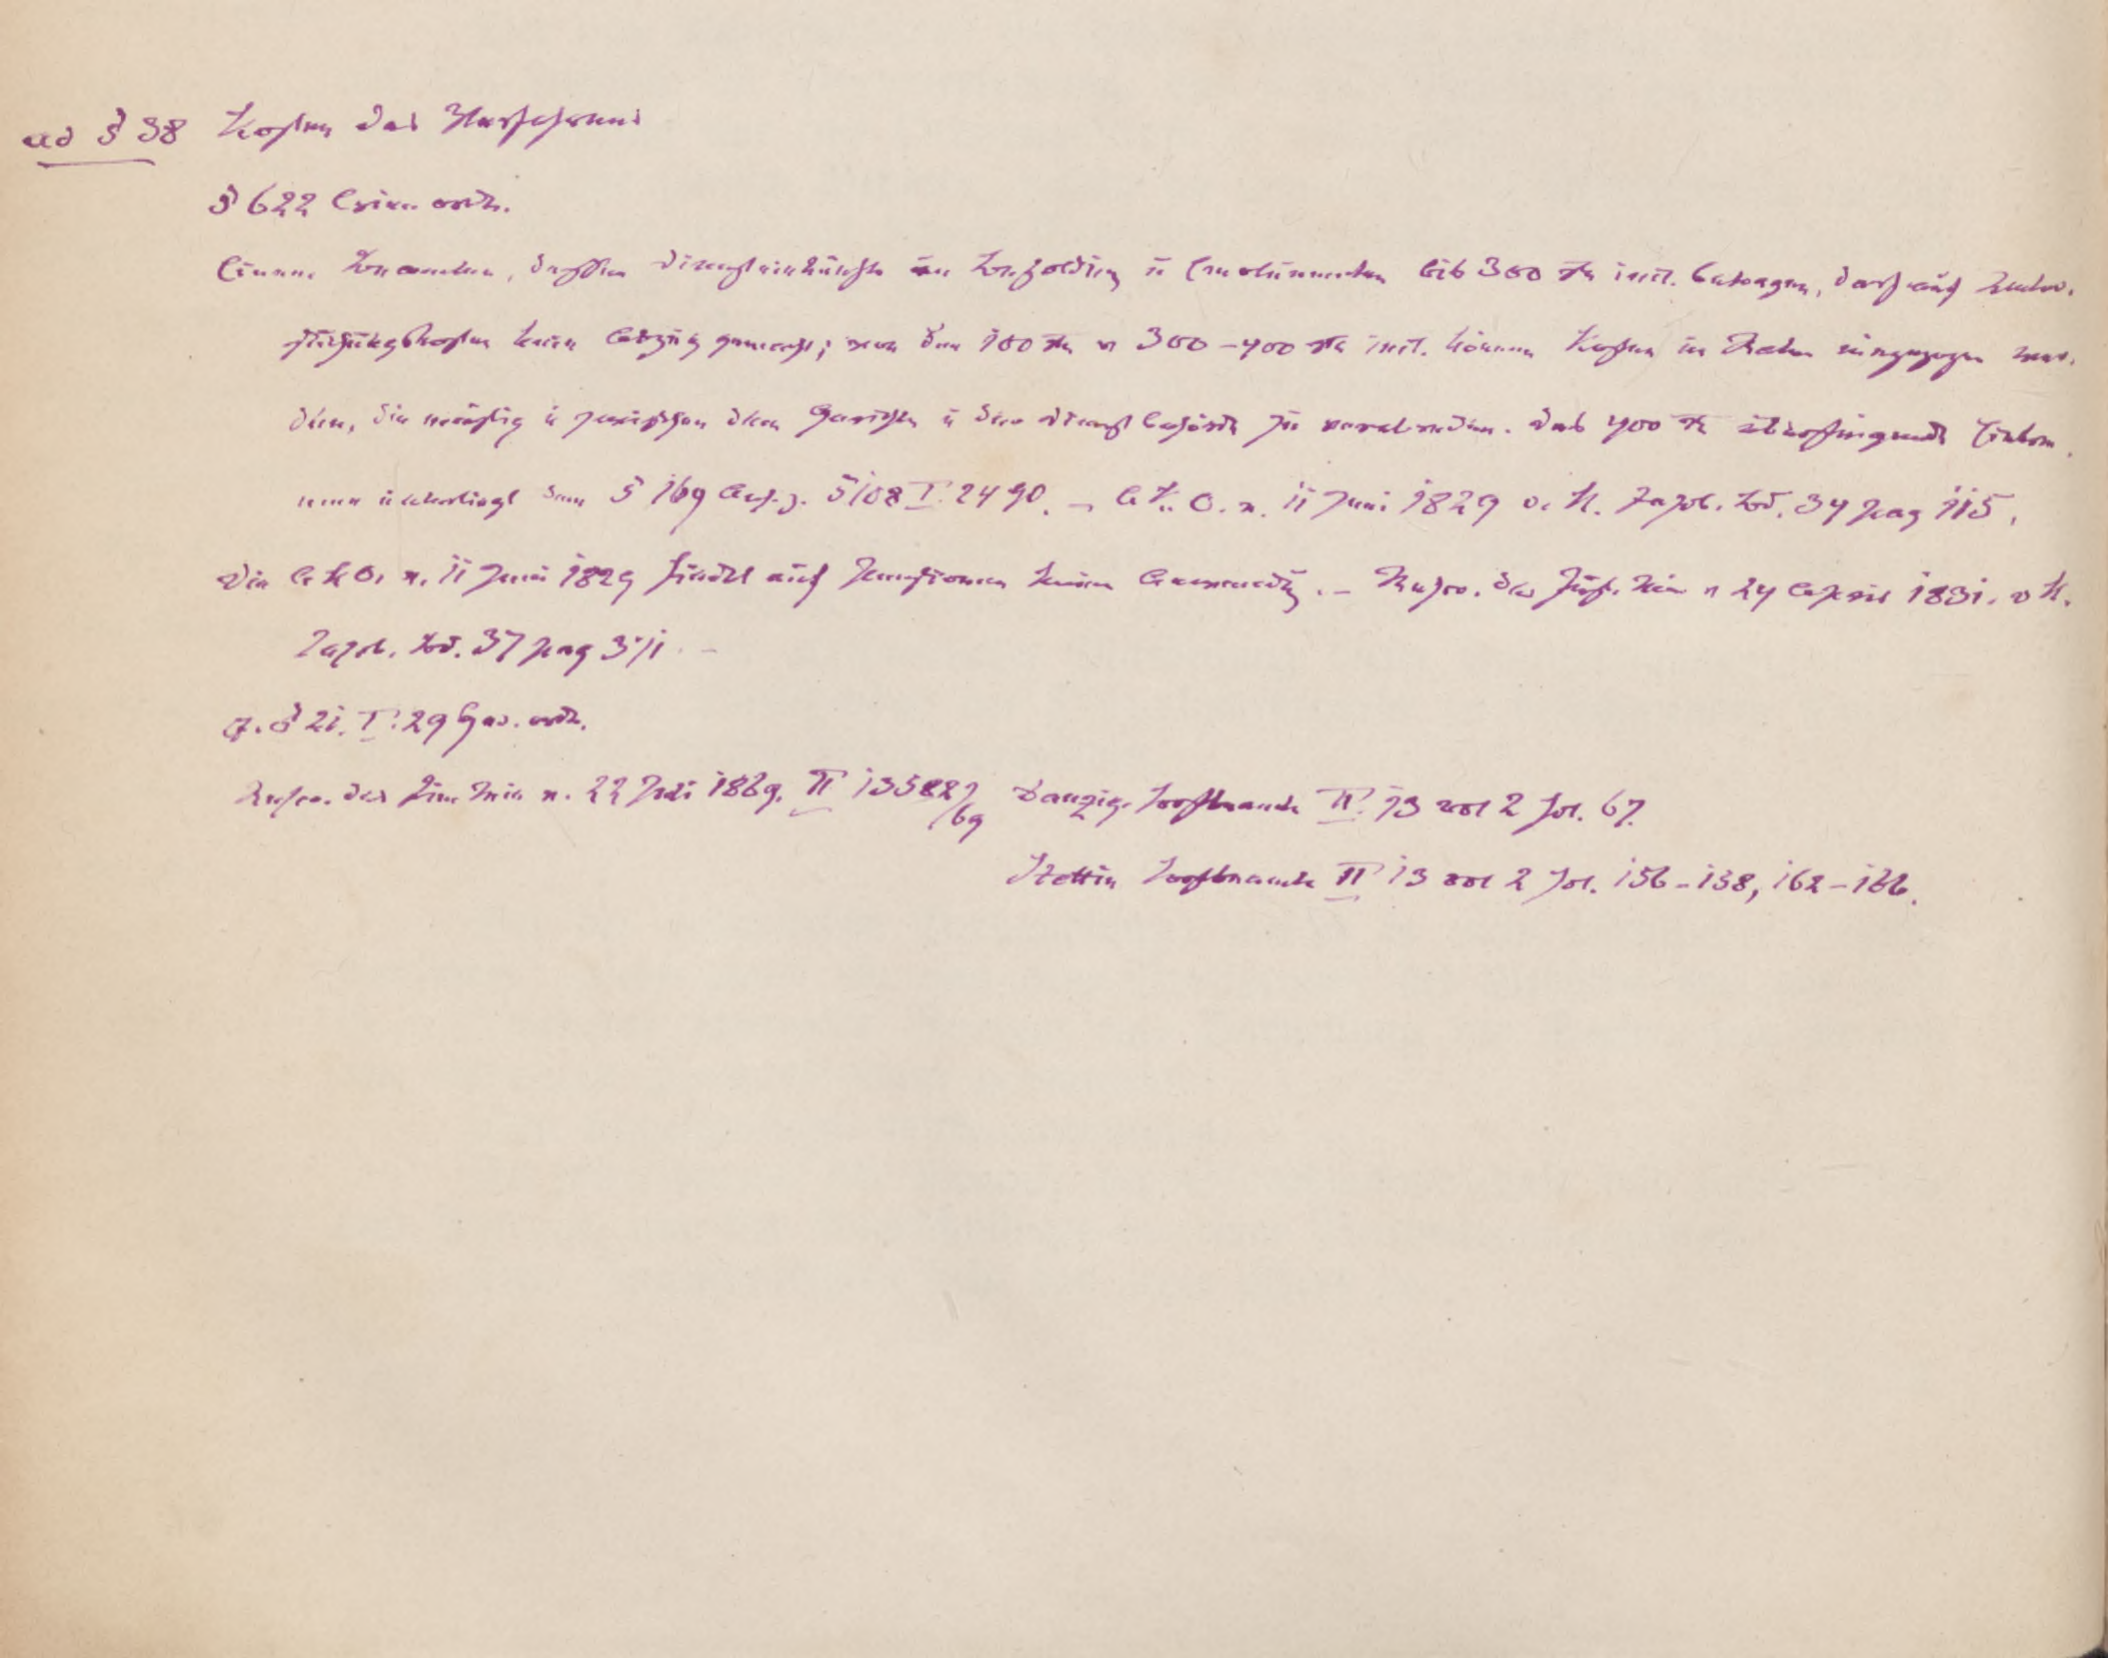 ad § 38 Kosten des Verfahrens
§ 622 Crim. ordn.
Einem Beamten, dessen Diensteinkünfte an Besoldung u Emolumenten bis 300 rth incl. betragen, darf auf Unter-
suchungskosten kein Abzug gemacht; von den 100 rth v 300–400 rth incl. können Kosten in Raten eingezogen wer-
den, die mässig u zwischen dem Gericht u der Dienstbehörde zu verabreden. Das 400 rth übersteigende Einkom-
men unterliegt dem § 169 Anh. z. § 108 I. 24 GO. – A K. O. v. 11 Juni 1829 v. K. Jahrb. Bd. 34 pag 115.
Die A K O. v. 11 Juni 1829 findet auf Pensionen keine Anwendung. – Rescr. des Just. Min v 24 April 1831. v K.
Jahrb. Bd. 37 pag 371. –
cf. § 21. I. 29 Ger. ordn.
Rescr. des Fin. Min v. 22 Juli 1869. II 13582/69 Danzig. Forstbeamte II. 13 vol 2 fol. 67.
Stettin Forstbeamte II 13 vol 2 fol. 156–158, 162–166.